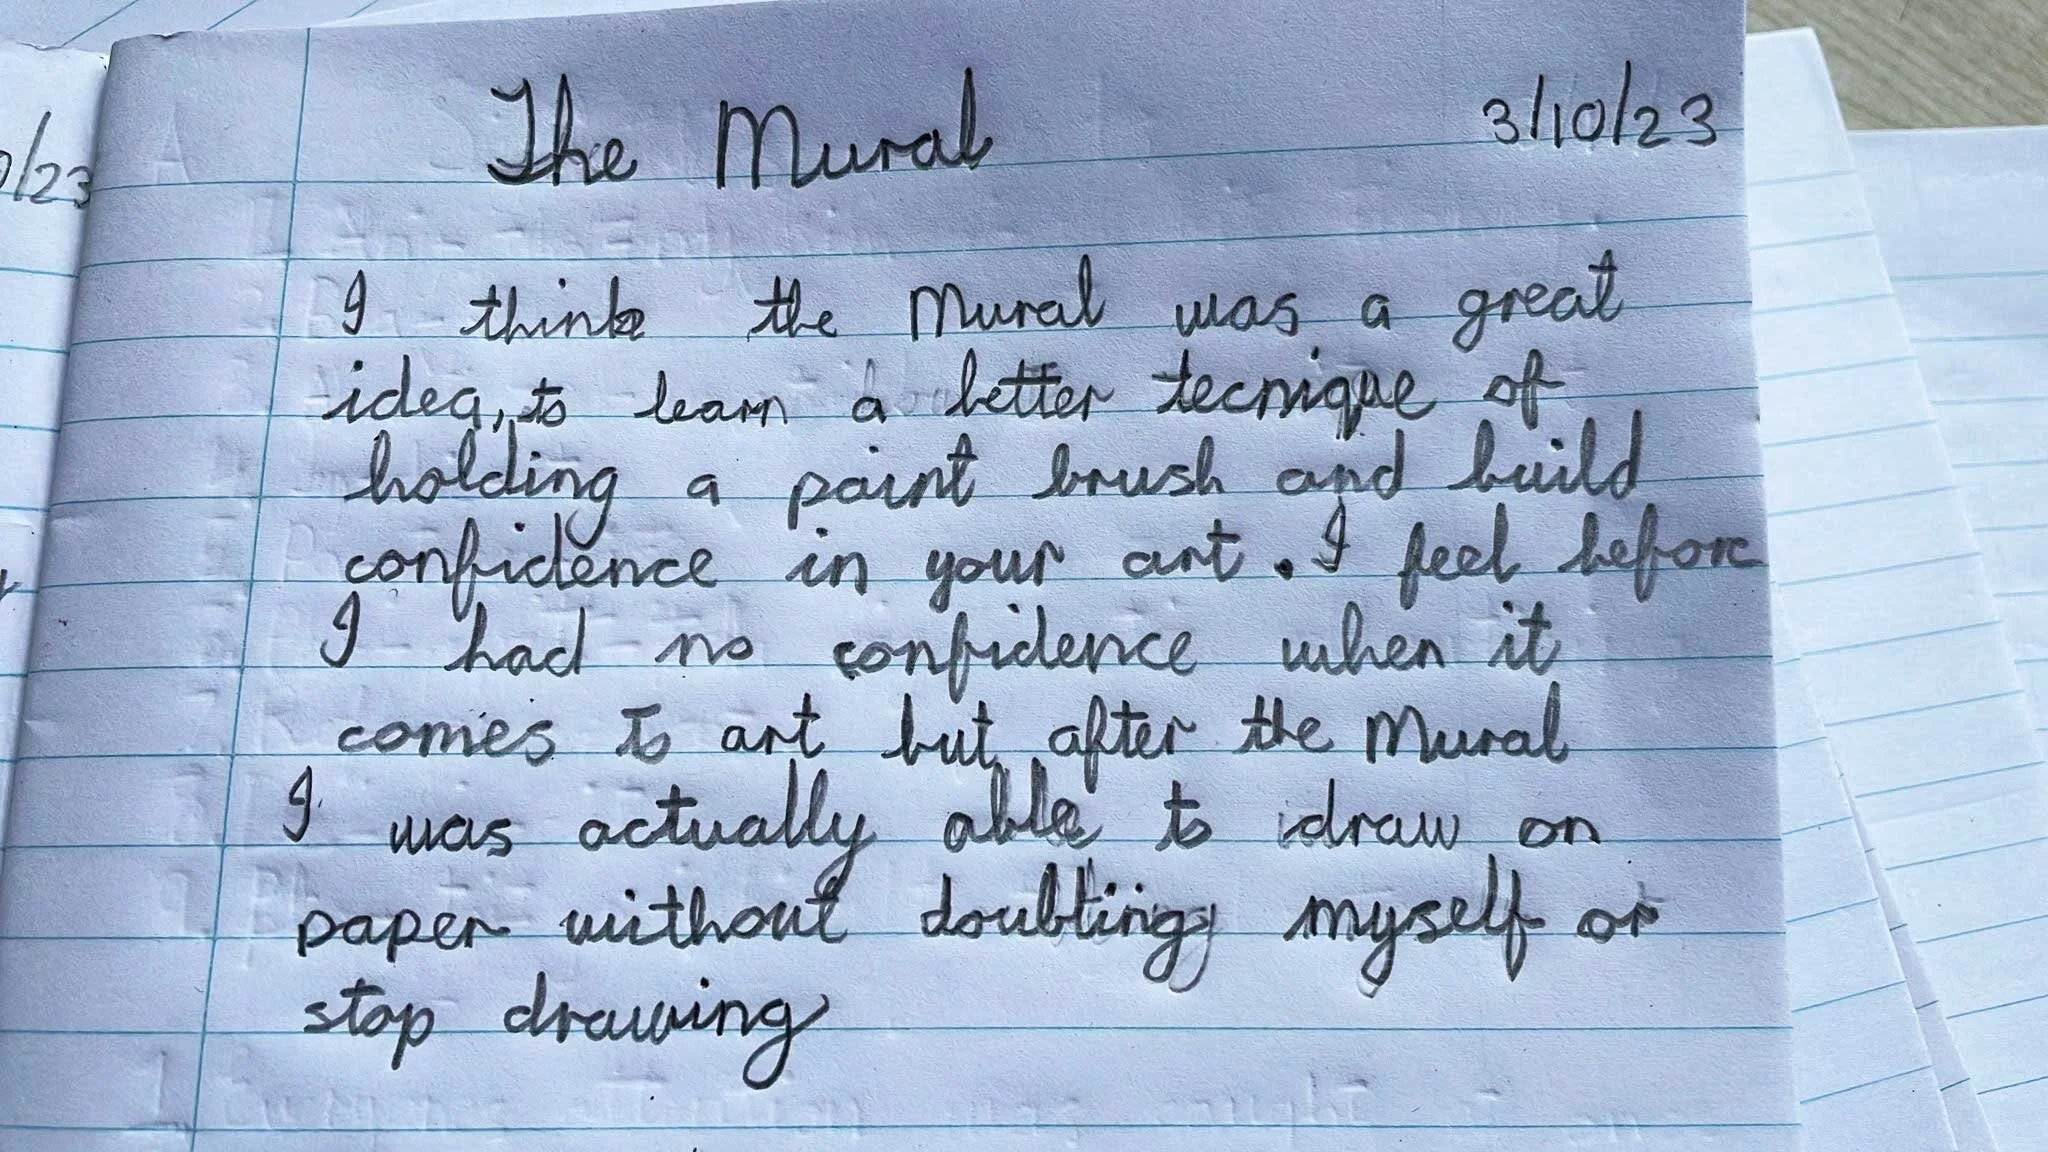 The Mural 3/10/23
I think the Mural was a great
idea, to learn a better tecnique of
holding a paint brush and build
confidence in your art. I feel before
I had no confidence when it
comes to art but after the Mural
I was actually able to draw on
paper without doubting myself or
stop drawing
/23